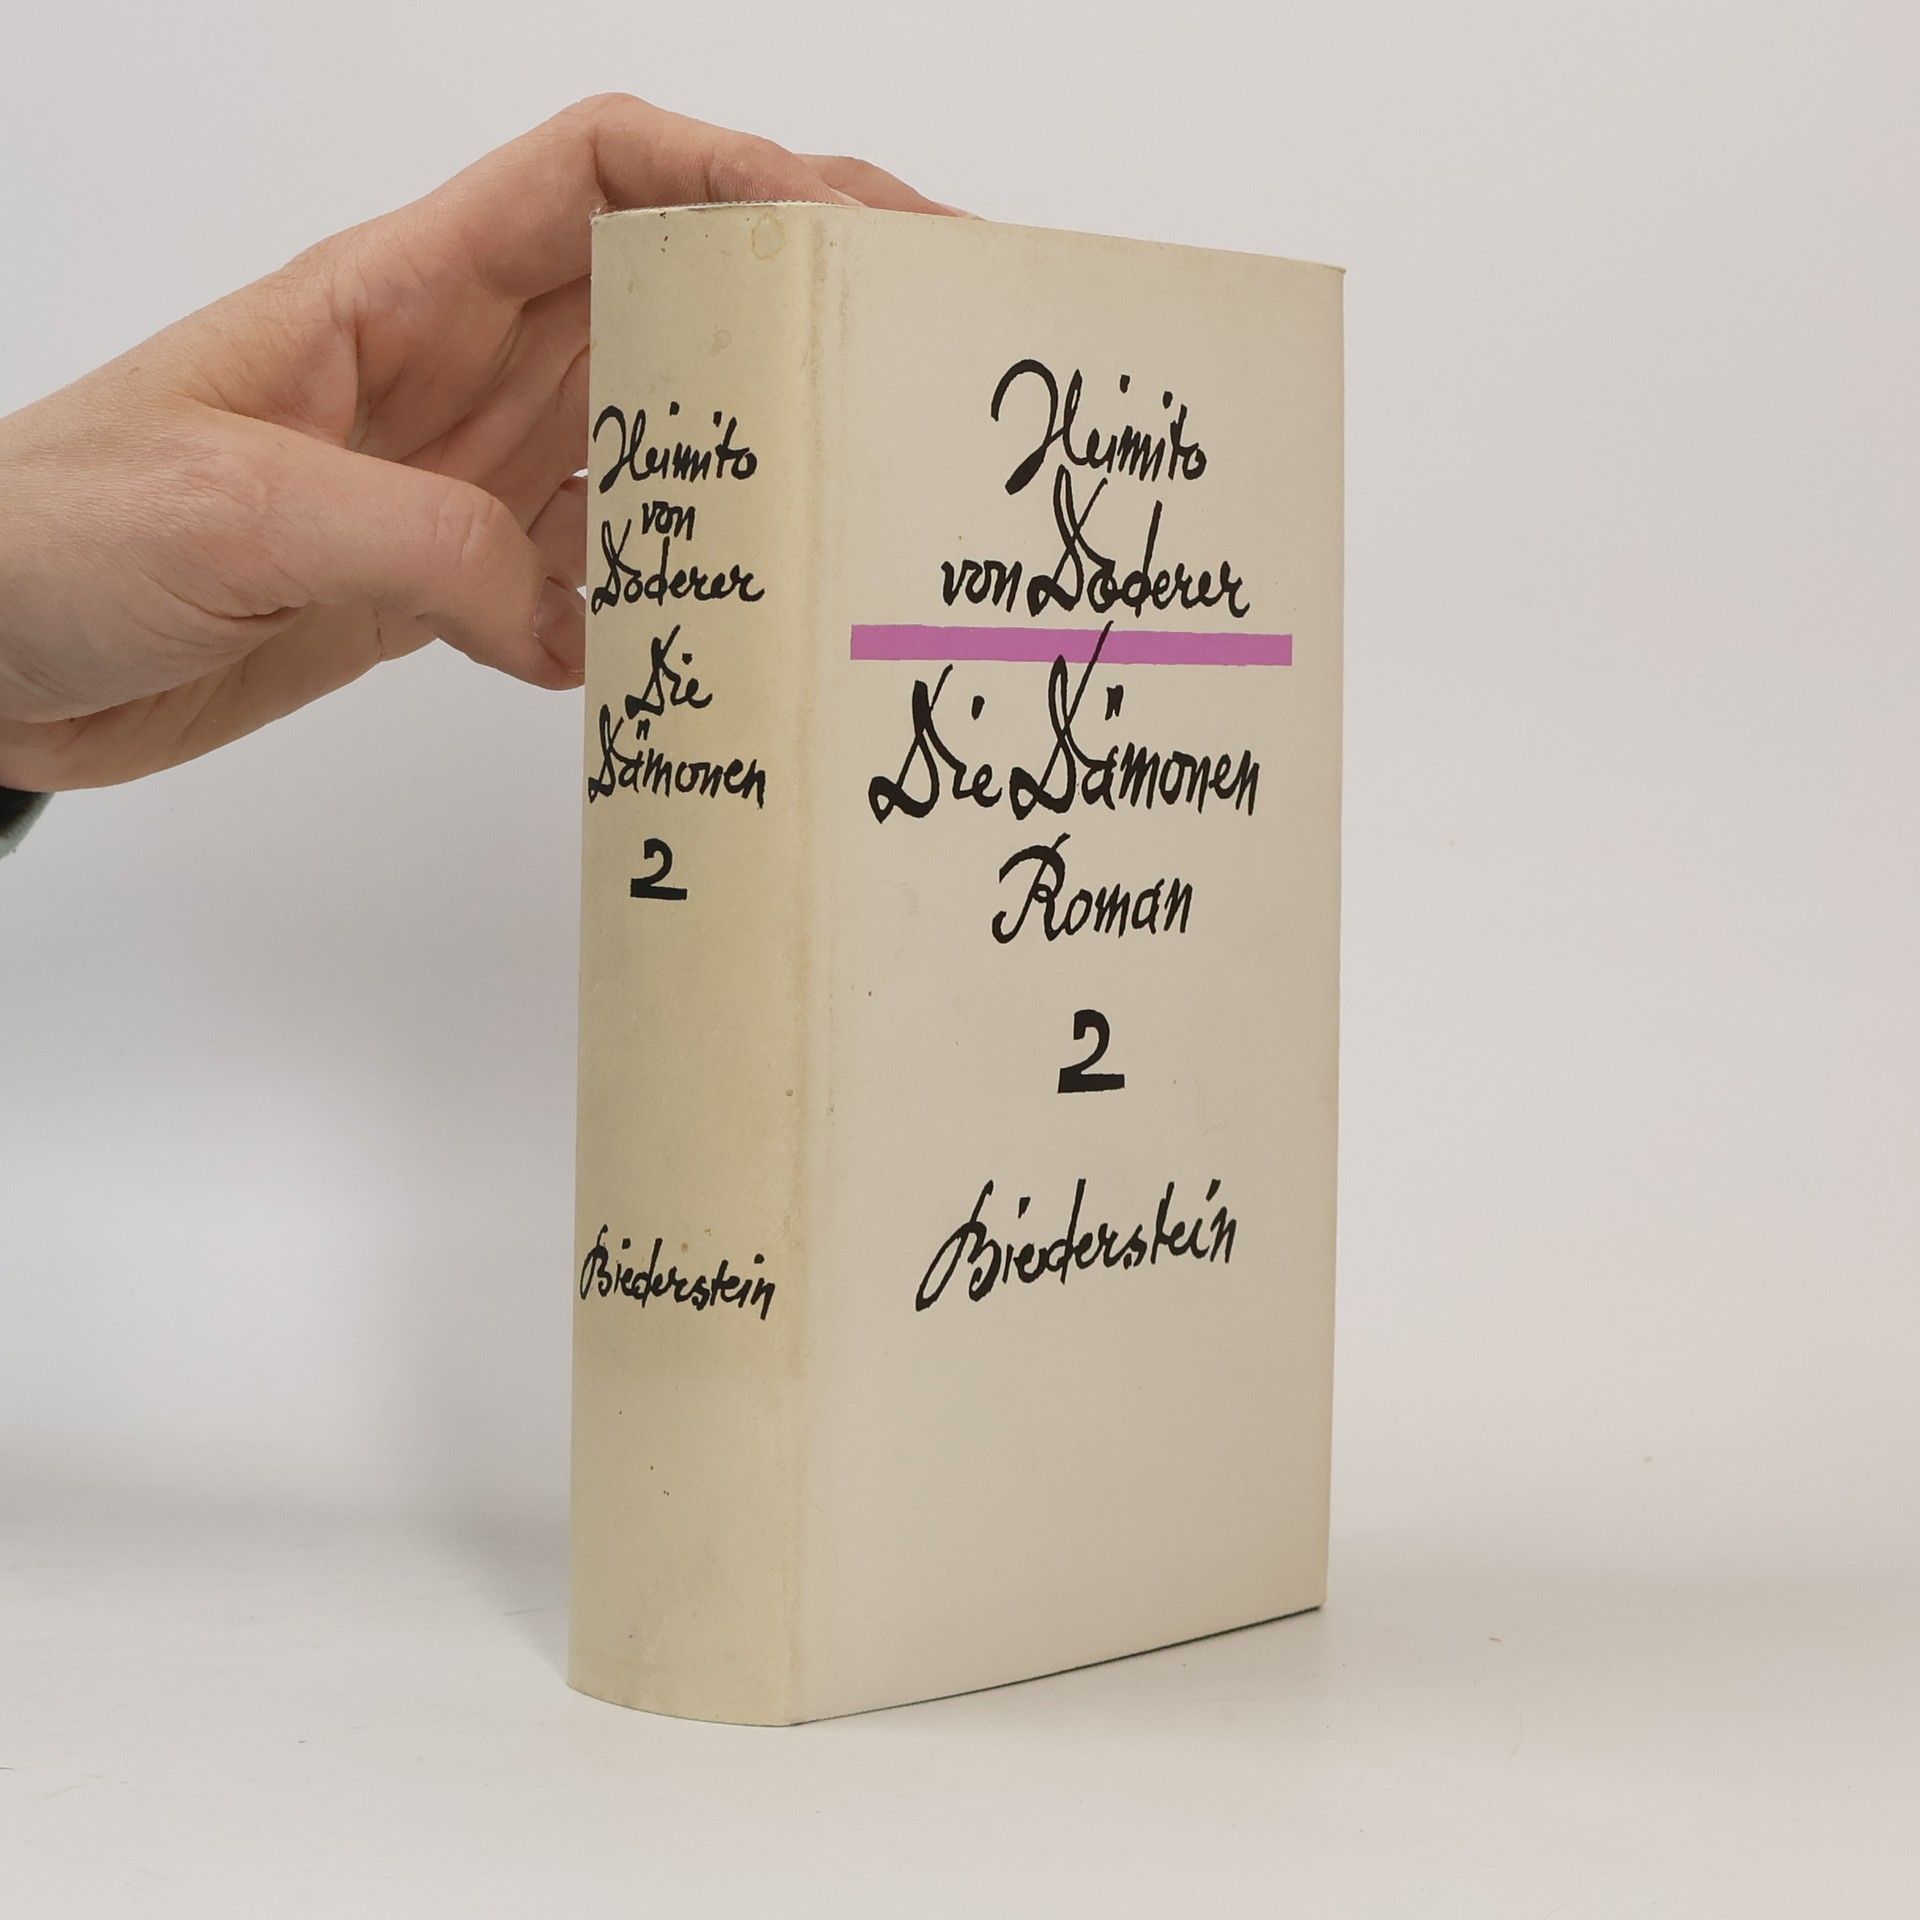 Heimito
von
Doderer
Die
Dämonen
2
Biederstein
Heimito
von Doderer
Die Dämonen
Roman
2
Biederstein